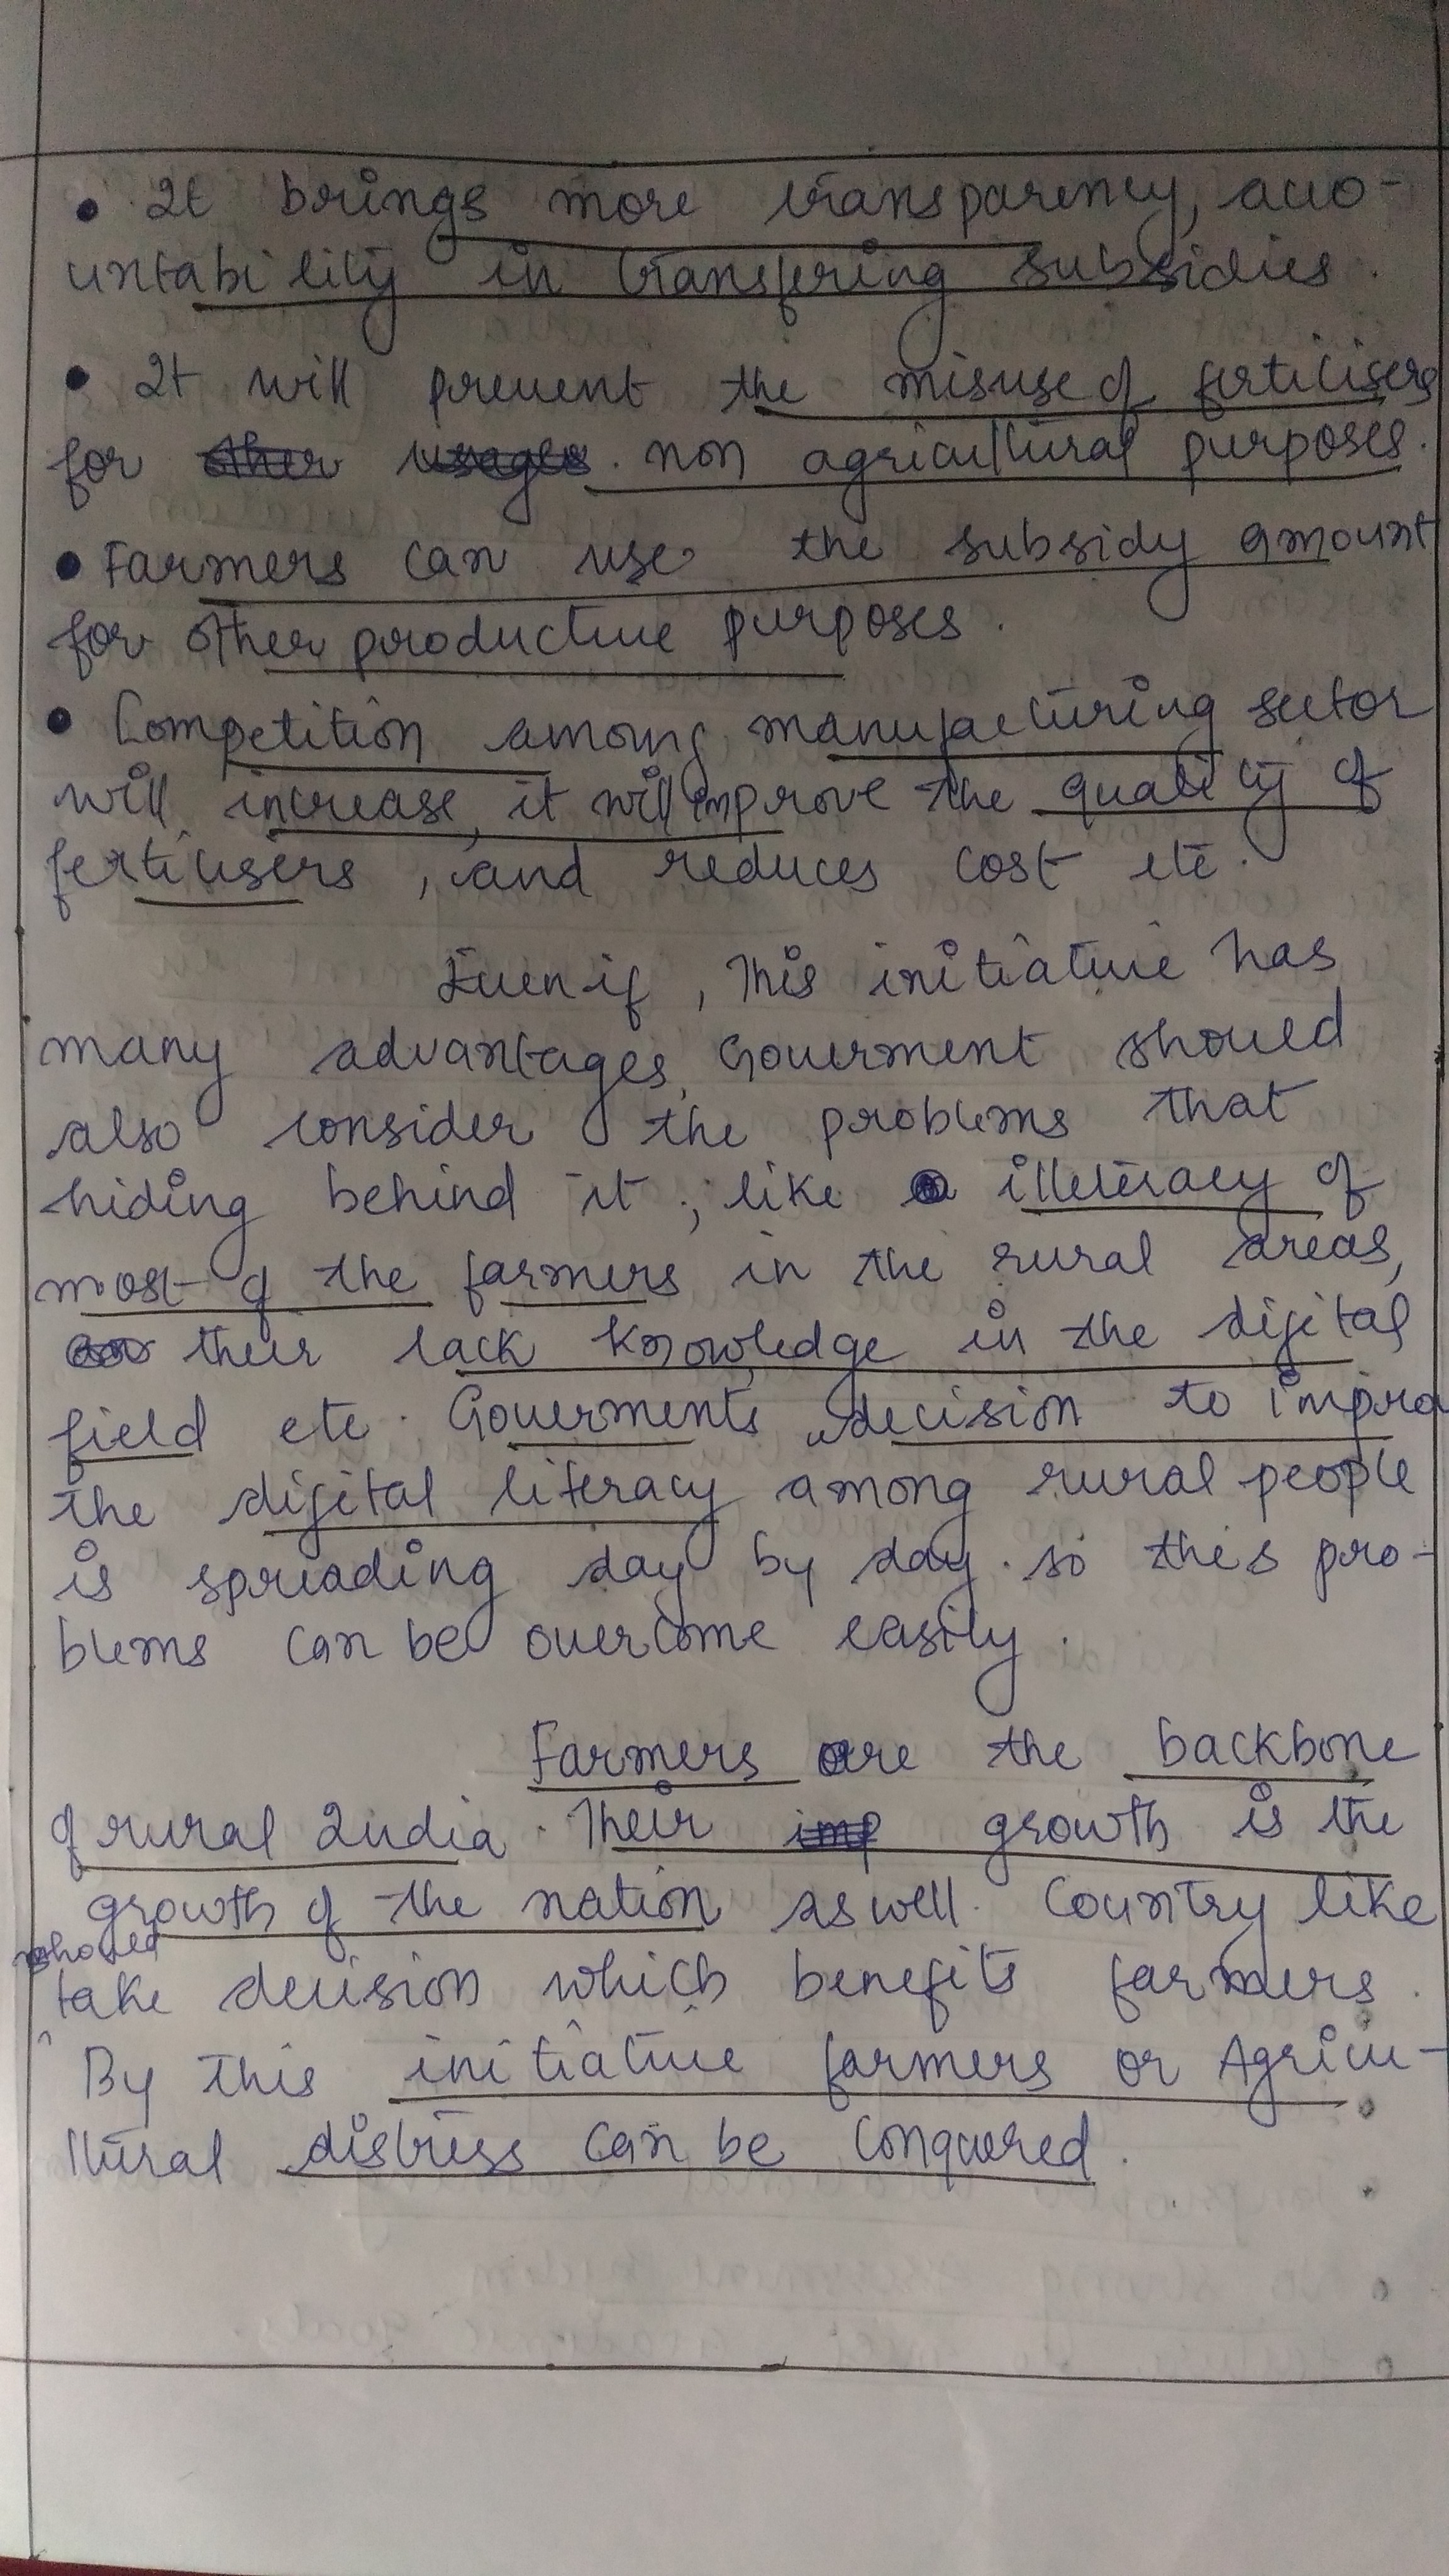 • It brings more transparency, acco-
untability in transfering subsidies.
• It will prevent the misuse of fertilisers
for other usages. non agricultural purposes.
• Farmers can use the subsidy amount
for other productive purposes.
• Competition among manufacturing sector
will increase, it will improve the quality of
fertilisers, and reduces cost etc.
Even if, This initiative has
many advantages, Government should
also consider the problems that
hiding behind it, like illeteracy of
most of the farmers in the rural areas,
their lack knowledge in the digital
field etc. Governments decision to impro
the digital literacy among rural people
is spreading day by day. so this pro-
blems can be overcome easily.
Farmers are the backbone
of rural India. Their imp growth is the
growth of the nation as well. Country like
should
take decision which benefits farmers.
By this initiative farmers or Agricu-
ltural distress can be conquered.